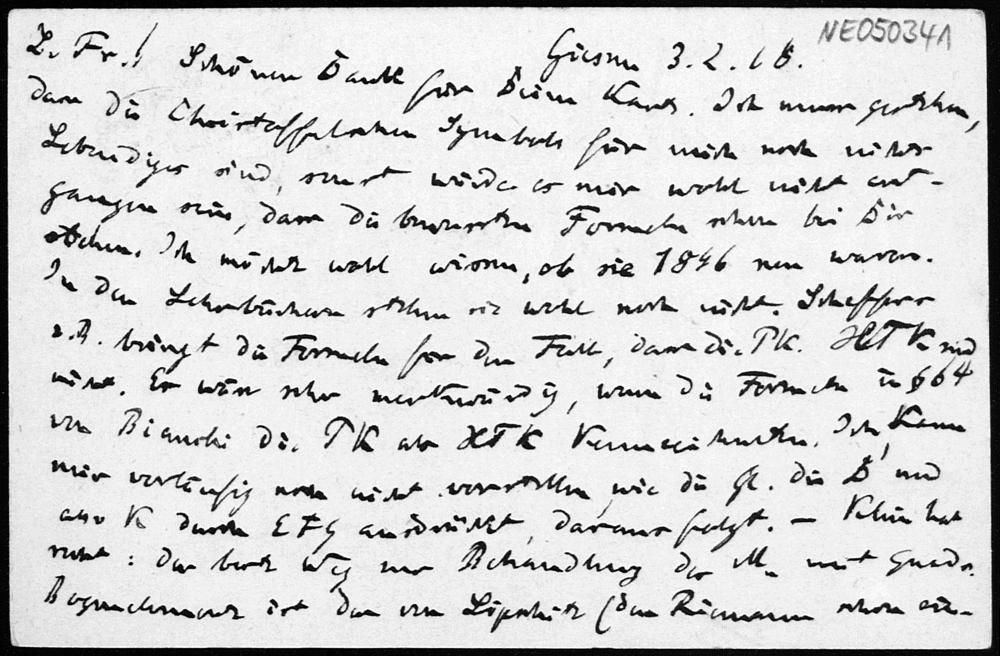 NE05034A
Giessen 3.2.18.
L. Fr.! Schönen Dank für Deine Karte. Ich muss gestehen,
dass die Christoffelschen Symbole für mich noch nichts
Lebendiges sind, sonst würde es mir wohl nicht ent-
gangen sein, dass die bewussten Formeln schon bei Dir
stehen. Ich möchte wohl wissen, ob sie 1896 neu waren.
In den Lehrbüchern stehen sie wohl noch nicht. Scheffers
z.B. bringt die Formeln für den Fall, dass die PK. HTK sind
nicht. Es wäre sehr merkwürdig, wenn die Formeln in § 64
von Bianchi die PK als HTK kennzeichneten. Ich kann
mir vorläufig noch nicht vorstellen, wie die Gl. die D und
also K durch EFG ausdrückt, daraus folgt. — Klein hat
recht: der beste Weg zur Behandlung der M. mit quadr.
Bogenelement ist der von Lipschitz (den Riemann schon ein-